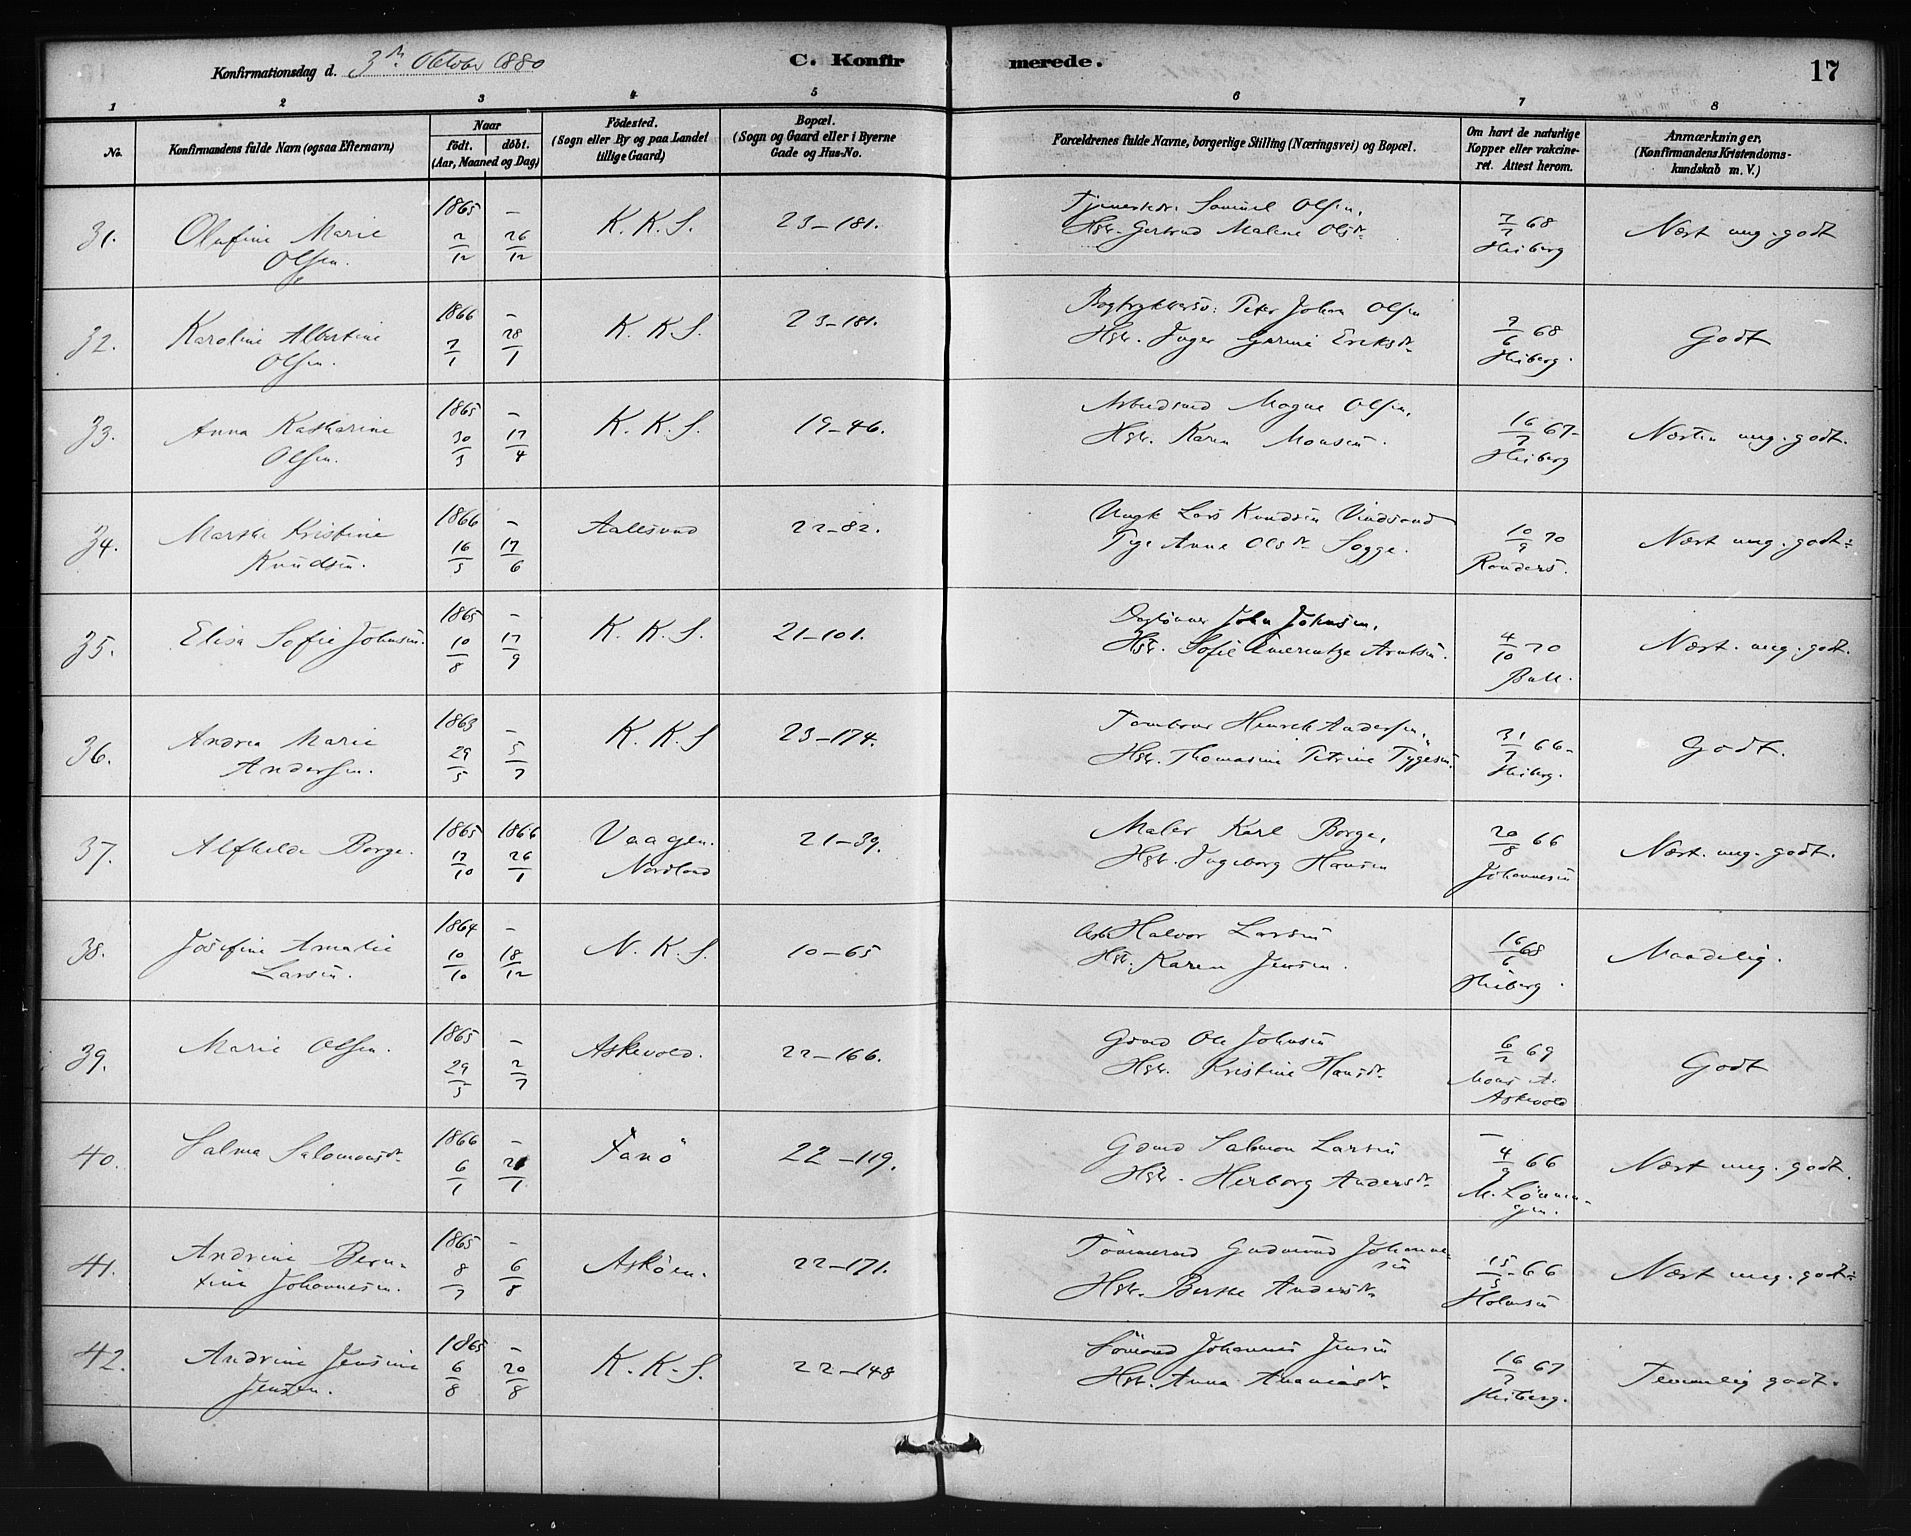 Konfirmationsdag d. 3die Oktober 1880
C. Konfirmerede.
17
1 2 3 4 5 6 7 8
No.
Konfirmandens fulde Navn (ogsaa Efternavn)
Naar
født. døbt.
(Aar, Maaned og Dag)
Fødested.
(Sogn eller By og paa Landet
tillige Gaard)
Bopæl.
(Sogn og Gaard eller i Byerne
Gade og Hus-No.
Forældrenes fulde Navne, borgerlige Stilling (Næringsvei) og Bopæl.
Om havt de naturlige
Kopper eller vakcine-
ret. Attest herom.
Anmærkninger,
(Konfirmandens Kristendoms-
kundskab m. V.)
31. Olufine Marie
Olsen.
1865 2/12 – 26/12
K. K. S.
23–181.
Samuel Olsen,
Hstr. Gertrud Malene Olsdr
7/7 68
Heiberg
Næst mg. godt
32. Karoline Albertine
Olsen.
1866 7/1 – 28/1
K. K. S.
23–181.
Peter Johan Olsen
Hstr. Inger Eriksdr
9/6 68
Heiberg.
Godt
33. Anna Katharine
Olsen.
1865 30/3 – 17/4
K. K. S.
19–46.
Arbeidsmd Mogne Olsen,
Hstr. Karen Monsen.
16/7 67–
Heiberg
Næsten mg. godt.
34. Marthe Kristine
Knudsen.
1866 16/5 – 17/6
Aalesund
22–82.
Ungk Lars Knudsen Vindsand
Pige Anna Olsdr Sogge.
10/9 70
Randers.
Næst mg. godt÷
35. Elisa Sofie Johnsen.
1865 10/8 – 17/9
K. K. S.
21–101.
Daglønner John Johnsen,
Hstr. Sofie Emerentze Arntsen.
4/10 70
Bull.
Næst. mg. godt.
36. Andrea Marie
Andersen.
1863 29/5 – 5/7
K. K. S
23–174.
Henrik Andersen,
Hstr. Thomasine Petrine Tygesen.
31/7 66–
Heiberg.
Godt.
37. Alfhelde Borge.
1865 17/10 1866 26/1
Vaagen.
Nordland
21–39.
Maler Karl Borge,
Hstr. Ingeborg Hansen
20/8 66
Johannesen
Næst. mg. godt.
38. Josefine Amalie
Larsen.
1864 10/10 – 18/12
N. K. S.
10–65
Arb. Halvor Larsen
Hstr. Karen Jensen.
16/6 68
Heiberg.
Maadelig.
39. Marie Olsen.
1865 29/5 – 2/7
Askevold.
22–166.
Gdmd Ole Johnsen
Hstr. Kristine Hansdr.
6/2 69
Mons A.
Askevold
Godt
40. Salma Salomonsdr.
1866 6/1 – 21/1
Fanö
22–119.
Gdmd Salmon Larsen
Hstr. Herborg Andersdr
–
4/9 66
M. Lönnin-
gen.
Næst mg. godt.
41. Andrine Bern-
tine Johannesen.
1865 8/7 – 6/8
Askøen.
22–171.
Tømmermd Gudmund Johanne-
sen
Hstr. Berthe Andersdr
15/5 66
Holmsen
Næst mg. godt÷
42. Andrine Jensine
Jensen.
1865 6/8 – 20/8
K. K. S.
22–148
Sømand Johannes Jensen
Hst. Anna Ananiasdr.
16/7 67
Heiberg.
Temmelig godt.